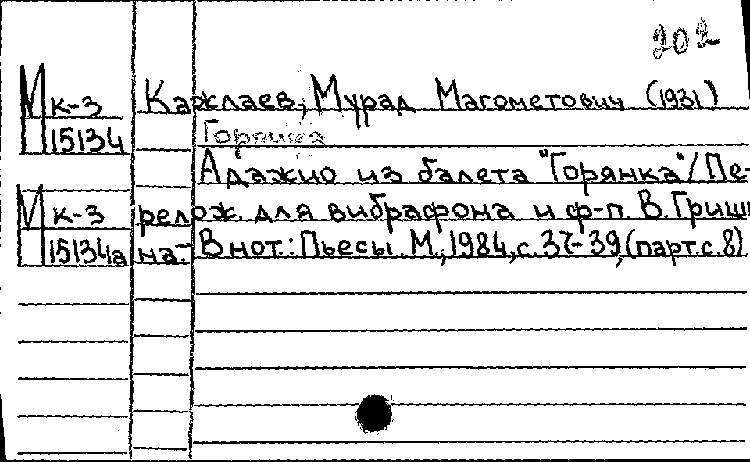 202
М к-3 Кажлаев, Мурад Магометович (1931)
15134 Горянка
Адажио из балета "Горянка"/Пе-
М к-3 релож. для вибрафона и ф-п. В. Гриши
15134а на.- В нот.: Пьесы. М., 1984, с. 37-39, (парт. с. 8)